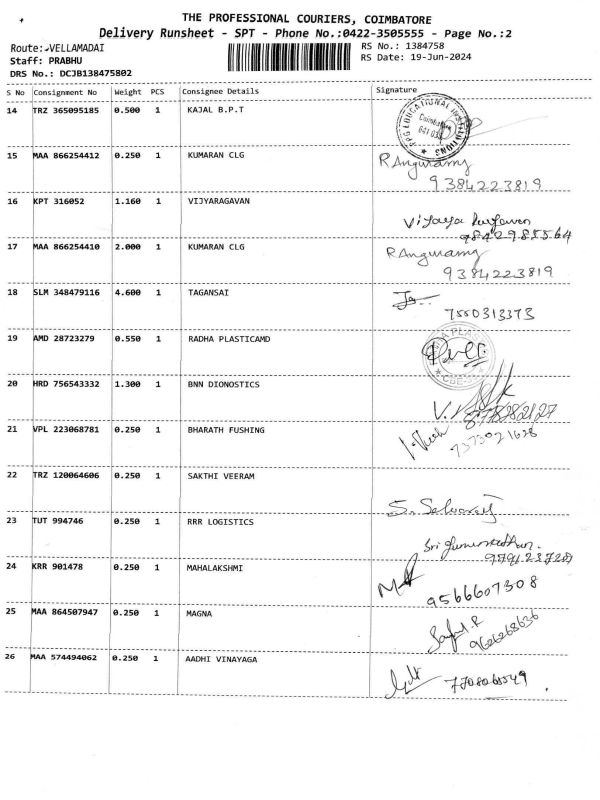 THE PROFESSIONAL COURIERS, COIMBATORE
Delivery Runsheet - SPT - Phone No.:0422-3505555 - Page No.:2
Route: VELLAMADAI RS No.: 1384758
Staff: PRABHU RS Date: 19-Jun-2024
DRS No.: DCJB138475802
S No Consignment No Weight PCS Consignee Details Signature
14 TRZ 365095185 0.500 1 KAJAL B.P.T
PPG EDUCATIONAL INSTITUTIONS
Coimbatore
641 035
15 MAA 866254412 0.250 1 KUMARAN CLG
R Anguramy
9384223819
16 KPT 316052 1.160 1 VIJYARAGAVAN
9842985564
17 MAA 866254410 2.000 1 KUMARAN CLG
R Anguramy
9384223819
18 SLM 348479116 4.600 1 TAGANSAI
7550313373
19 AMD 28723279 0.550 1 RADHA PLASTICAMD
20 HRD 756543332 1.300 1 BNN DIONOSTICS
21 VPL 223068781 0.250 1 BHARATH FUSHING
7373021628
22 TRZ 120064606 0.250 1 SAKTHI VEERAM
S. Selvaraj
23 TUT 994746 0.250 1 RRR LOGISTICS
24 KRR 901478 0.250 1 MAHALAKSHMI
9566607308
25 MAA 864507947 0.250 1 MAGNA
9626268636
26 MAA 574494062 0.250 1 AADHI VINAYAGA
7708068549